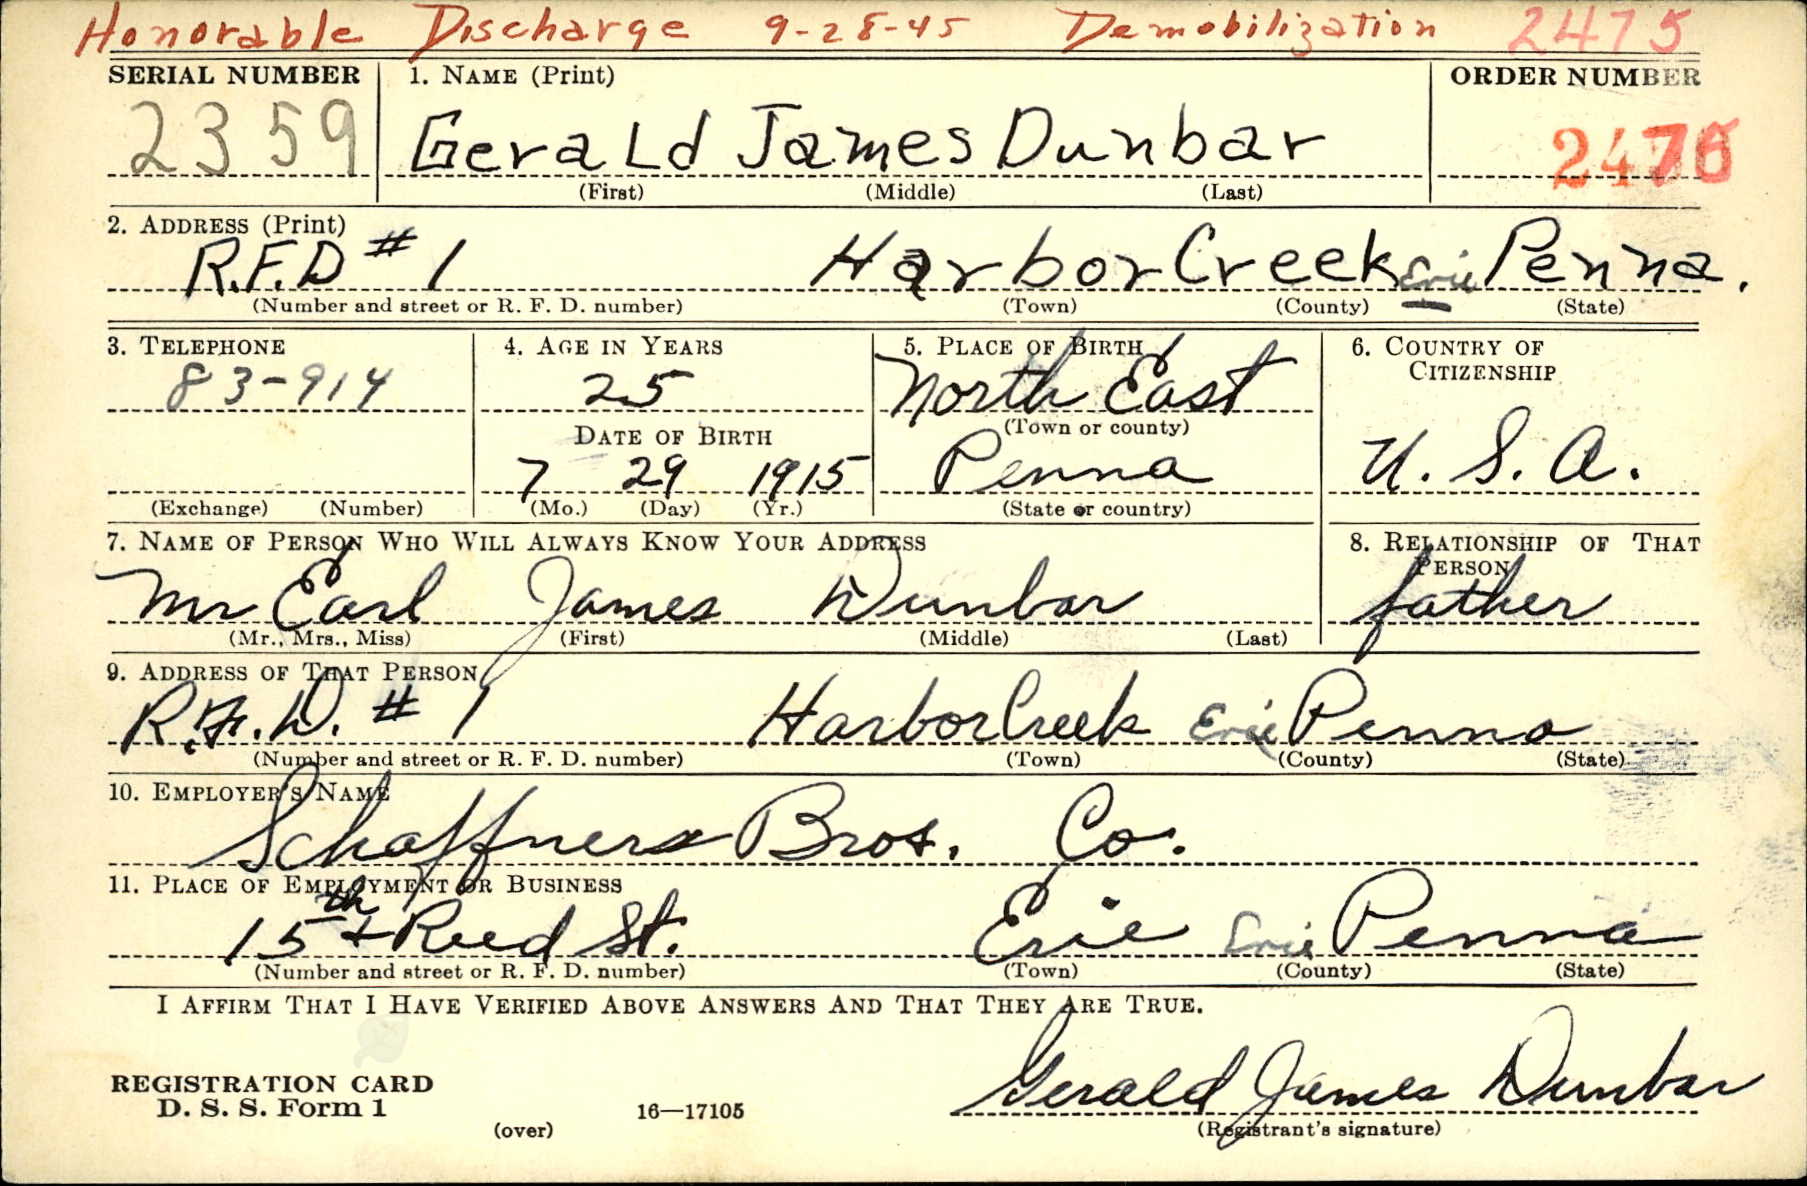 Honorable Discharge 9-28-45 Demobilization 2475
SERIAL NUMBER 1. NAME (Print) ORDER NUMBER
2359 Gerald James Dunbar
(First) (Middle) (Last)
2. ADDRESS (Print)
R.F.D # 1 Harbor Creek Erie Penna.
(Number and street or R. F. D. number) (Town) (County) (State)
3. TELEPHONE 4. AGE IN YEARS 5. PLACE OF BIRTH 6. COUNTRY OF
CITIZENSHIP
83-914 25 North East
(Town or county)
DATE OF BIRTH
7 29 1915 Penna U. S. A.
(Exchange) (Number) (Mo.) (Day) (Yr.) (State or country)
7. NAME OF PERSON WHO WILL ALWAYS KNOW YOUR ADDRESS 8. RELATIONSHIP OF THAT
PERSON
Mr Earl James Dunbar father
(Mr., Mrs., Miss) (First) (Middle) (Last)
9. ADDRESS OF THAT PERSON
R.F.D. # 1 Harbor Creek Erie Penna
(Number and street or R. F. D. number) (Town) (County) (State)
10. EMPLOYER'S NAME
Schaffners Bros. Co.
11. PLACE OF EMPLOYMENT OR BUSINESS
15th + Reed St. Erie Erie Penna
(Number and street or R. F. D. number) (Town) (County) (State)
I AFFIRM THAT I HAVE VERIFIED ABOVE ANSWERS AND THAT THEY ARE TRUE.
REGISTRATION CARD
D. S. S. Form 1 16—17105 Gerald James Dunbar
(over) (Registrant's signature)